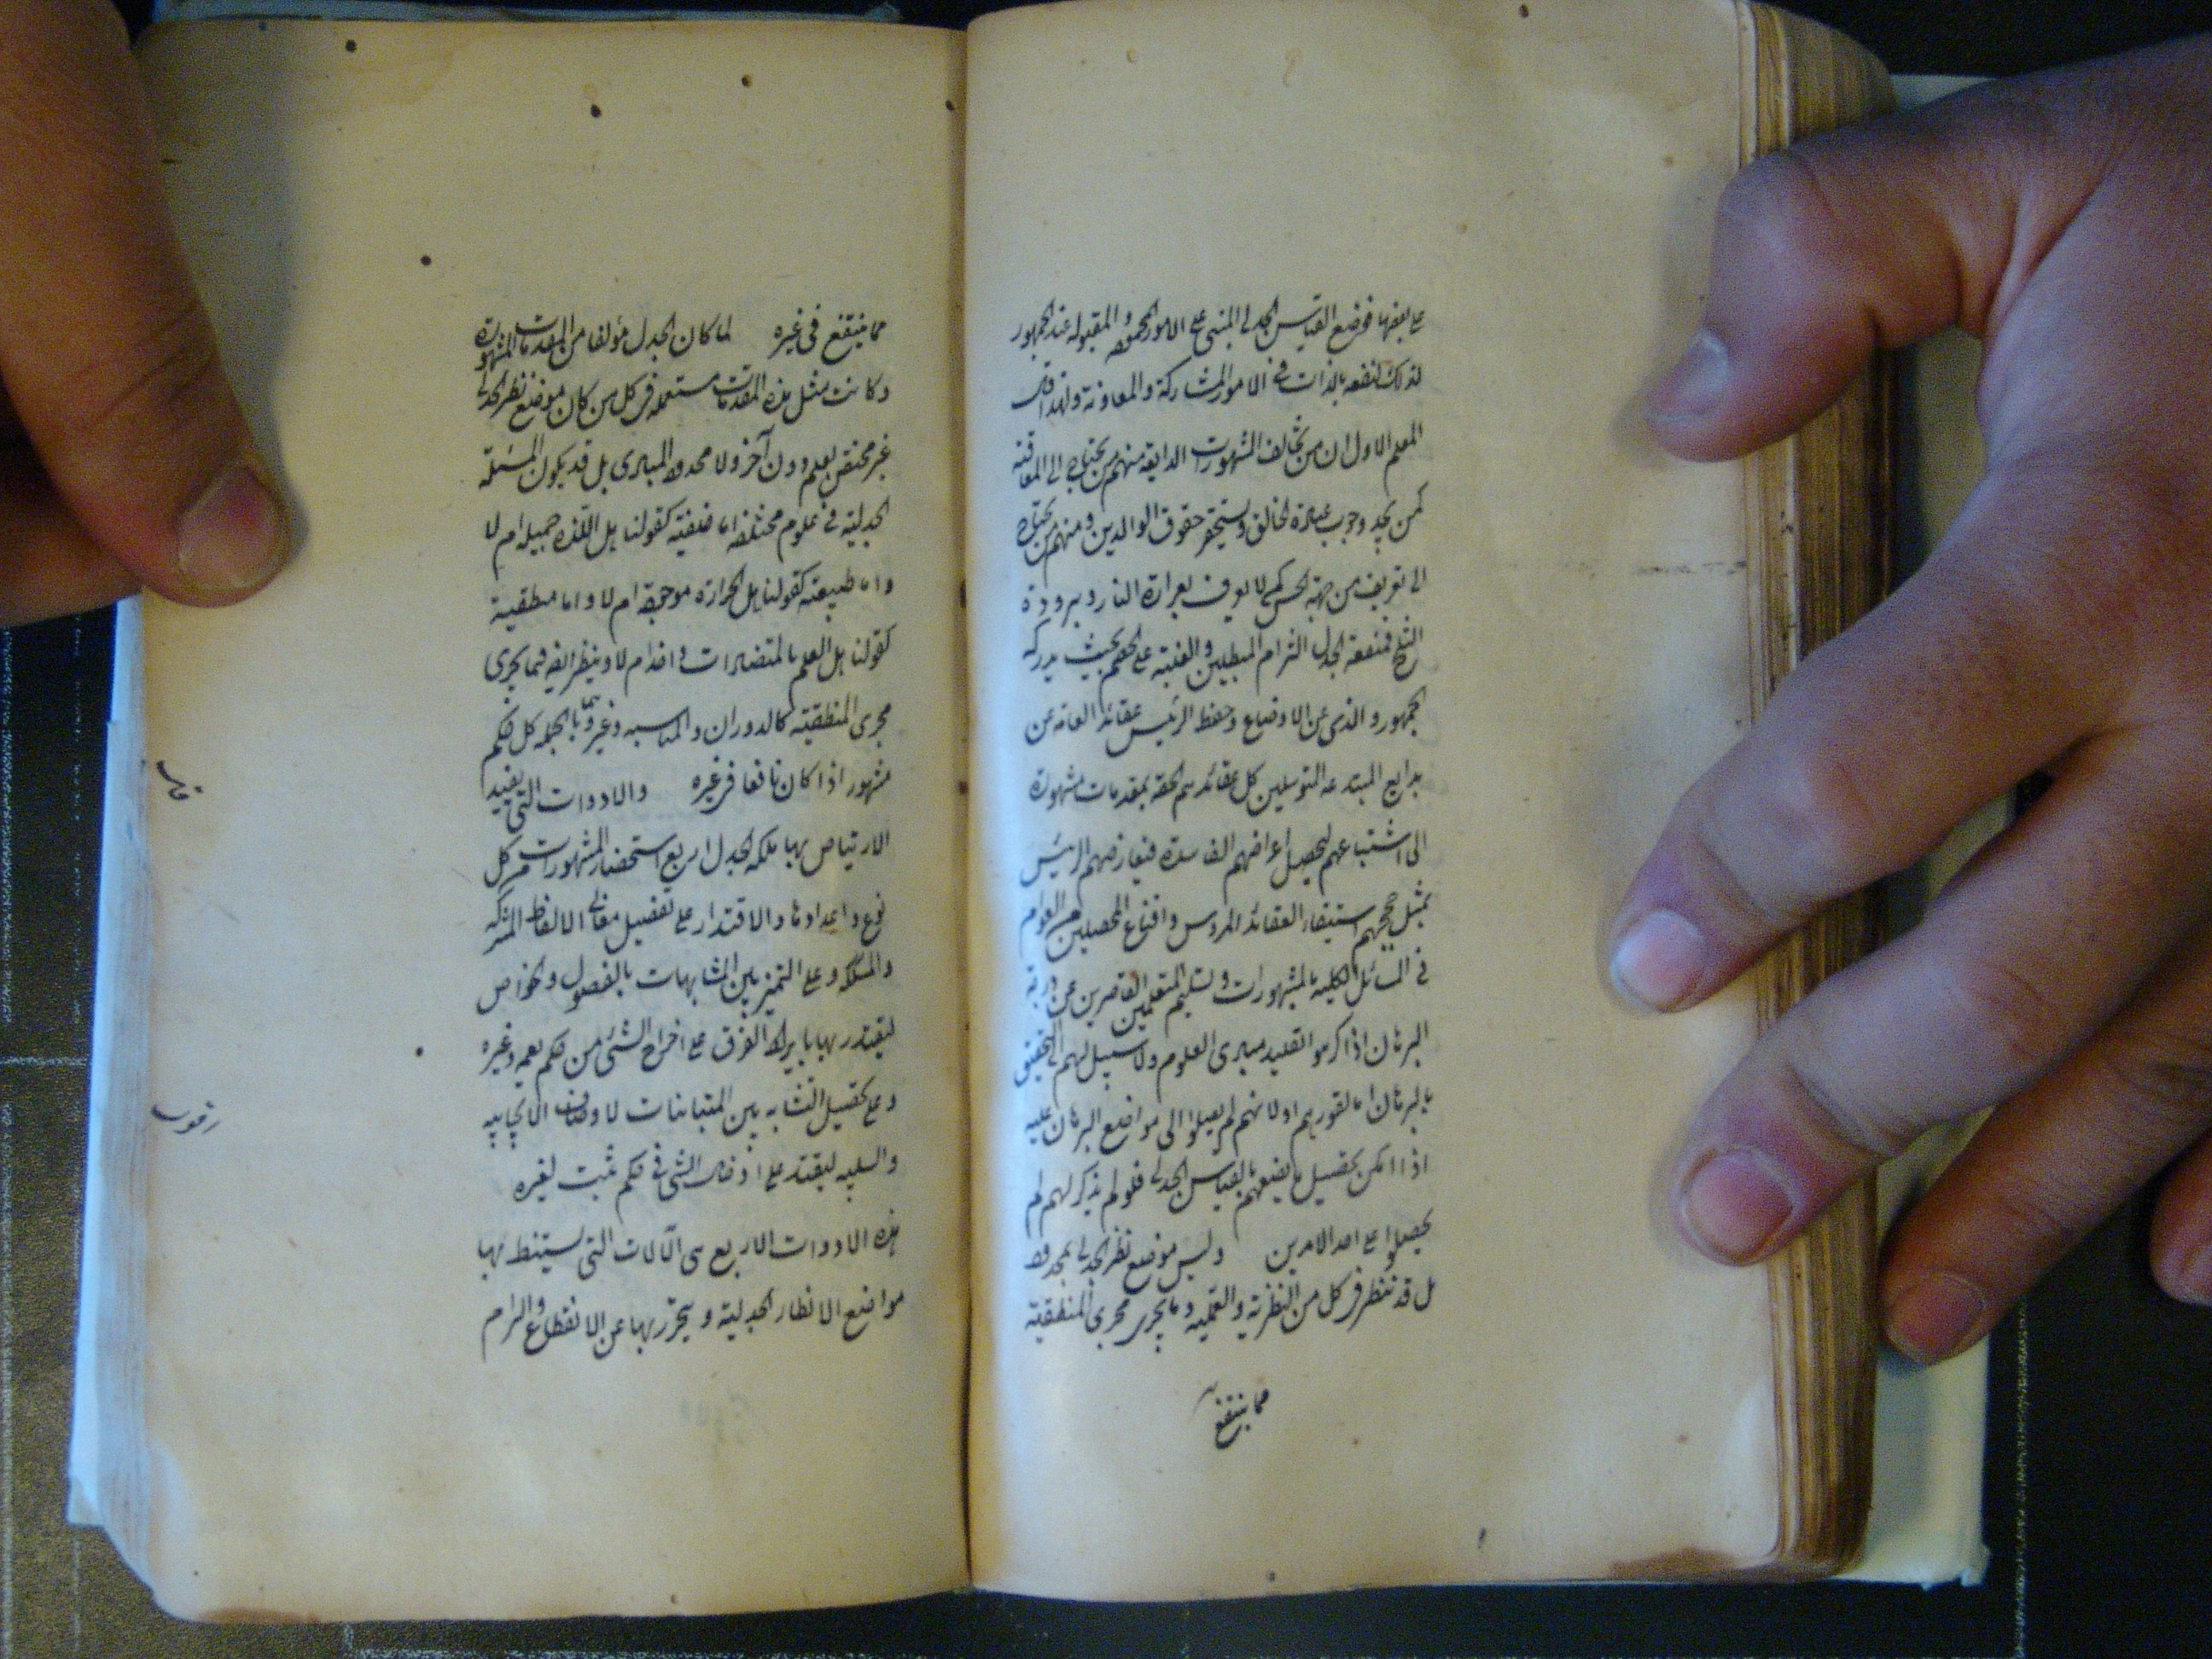 على بعضها فوضع القياس الجدلى المبنى على الامور المحموده والمقبوله عند الجمهور
لذلك لنفعه بالذات فى الامور المشاركة والمعاونة ولهذا قال
المعلم الاول ان من يخالف المشهورات الذايعة منهم من يحتاج الى المعاقبة
كمن يجحد وجوب عبادة الخالق ويستحقر حقوق الوالدين ومنهم من يحتاج
الى تعريف من جهة الحس كمن لا يعرف بحرارة النار وبرودة
الثلج فمنفعة الجدل الزام المبطلين والغلبة على الخصم بحيث يدركه
الجمهور والذب عن الاوضاع وحفظ الرئيس عقائد العامة عن
بدايع المبتدعه المتوسلين كل عقائدهم الحقة بمقدمات مشهورة
الى استتباعهم لتحصيل اغراضهم الفاسدة فيعارضهم الرئيس
بمثل حججهم استبقاء العقائد واقناع المحصلين من العوام
فى المسائل الكلية بالمشهورات وتسليم المتعلمين القاصرين عن درجة
البرهان اذا كرهوا تقليد مبادى العلوم ولا سبيل لهم الى التحقيق
بالبرهان اما لقصورهم او لانهم لم يصلوا الى مواضع البرهان عليه
اذا امكن تحصيل ما ينفعهم بالقياس الجدلى فلو لم يذكر لهم لم
يحصلوا على احد الامرين وليس موضع نظر الجدلى بمحدود
بل قد ننظر فى كل من النظرية والعمليه وما يجرى مجرى المنطقية
مما ينتفع
مما ينتفع فى غيره لما كان الجدل مؤلفا من المقدمات المشهورة
وكانت مثل هذه المقدمات مستعملة فى كل من كان موضع نظر الجدلى
غير مختص بعلم دون آخر ولا محدود المبادى بل قد يكون المسئلة
الجدلية فى علوم مختلفة اما خلقية كقولنا هل اللذه جميله ام لا
واما طبيعية كقولنا هل الحرارة موجبة ام لا واما منطقية
كقولنا هل العلم بالمتضادات واحد ام لا وينظر ايضا فيما يجرى
مجرى المنطقية كالدوران والمناسبه وغيرهما بالجملة كل حكم
مشهور اذا كان نافعا فى غيره والادوات التى يفيد
الارتياض بها ملكة الجدل اربع استحضار المشهورات من كل
نوع واعدادها والاقتدار على تفصيل معانى الالفاظ المشتركه
والمشككه وعلى التميز بين المشابهات بالفصول والخواص
ليقتدر بها بايراد الفرق على اخراج الشئ من حكم يعمه وغيره
وعلى تحصيل التشابه بين المتباينات لاوصاف الايجابيه
والسلبيه ليقتدر على ادخال الشى فى حكم ثبت لغيره
هذه الادوات الاربع هى الآلات التى يستنبط بها
مواضع الانظار الجدلية ويتحرز بها عن الانقطاع والزام